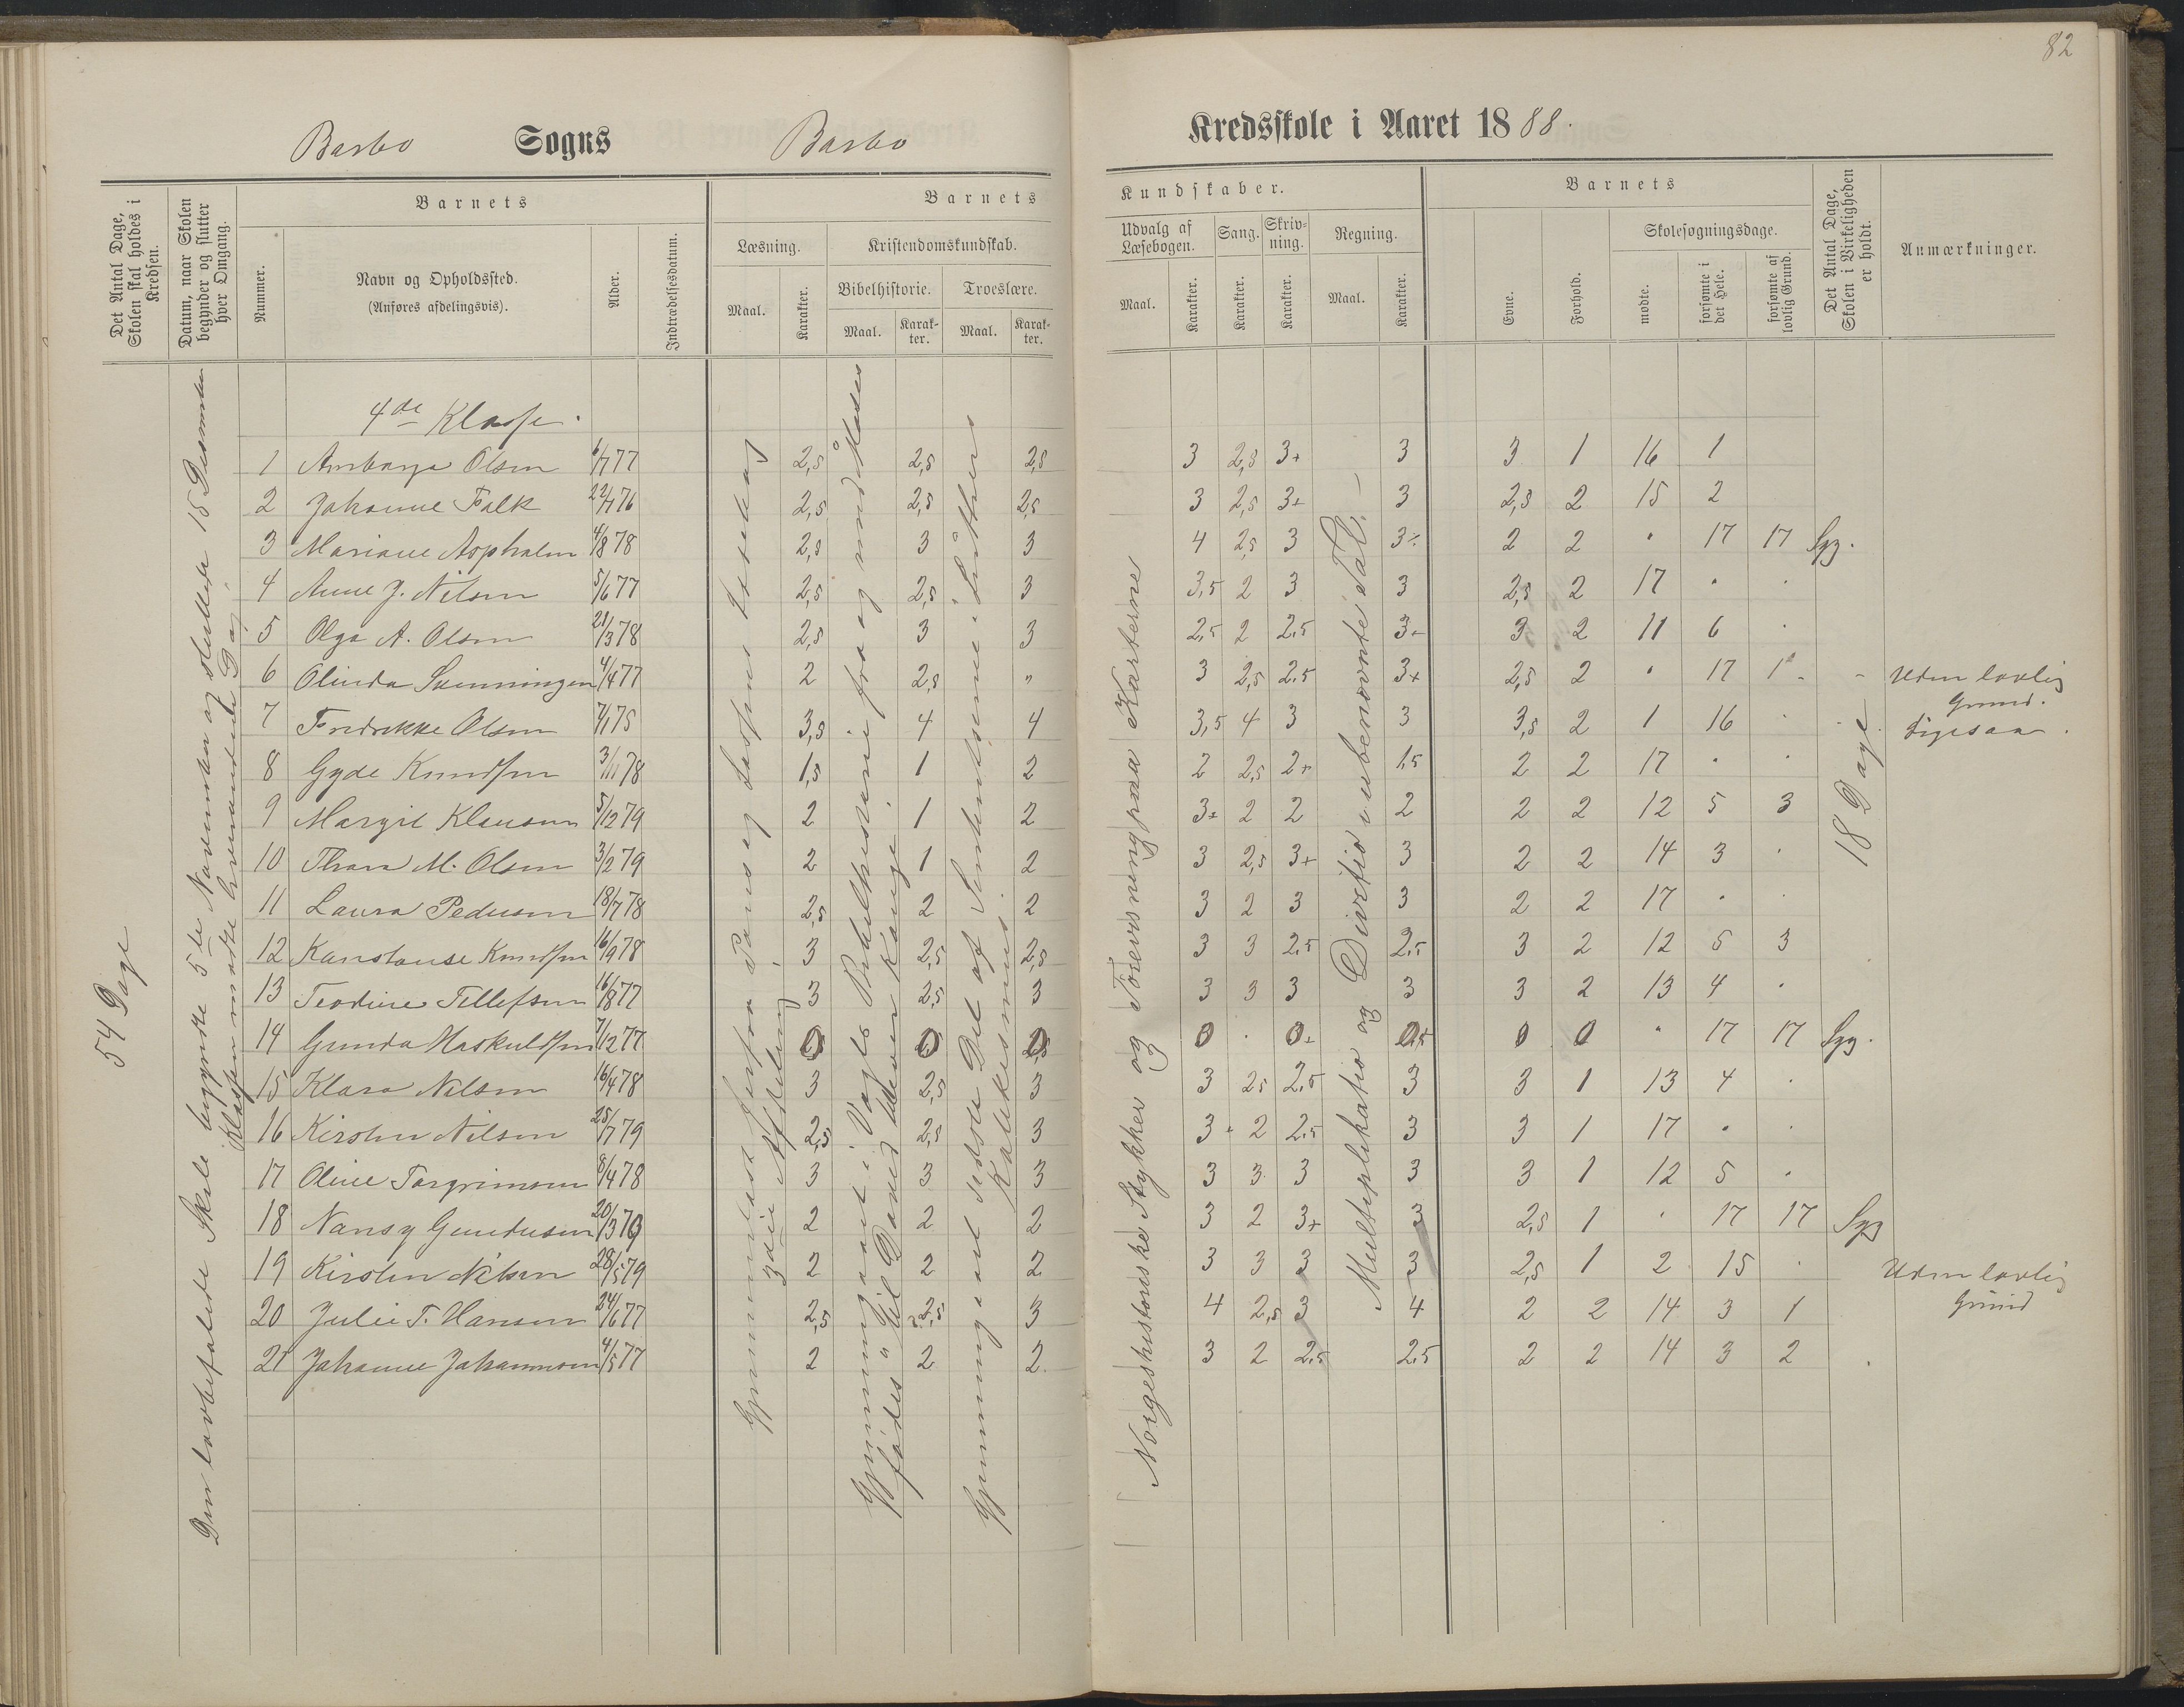 82
Barbo Sogns Barbo Kredsskole i Aaret 1888.
Det Antal Dage, Skolen skal holdes i Kredsen.
Datum, naar Skolen begynder og slutter hver Omgang.
Barnets
Nummer.
Navn og Opholdssted.
(Anføres afdelingsvis).
Alder.
Indtrædelsesdatum.
Barnets
Læsning.
Maal.
Karakter.
Kristendomskundskab.
Bibelhistorie.
Maal.
Karakter.
Troeslære.
Maal.
Karakter.
Kundskaber.
Udvalg af Læsebogen.
Maal.
Karakter.
Sang.
Karakter.
Skrivning.
Karakter.
Regning.
Maal.
Karakter.
Barnets
Evne.
Forhold.
Skolesøgningsdage.
mødte.
forsømte i det Hele.
forsømte af lovlig Grund.
Det Antal Dage, Skolen i Virkeligheden er holdt.
Anmærkninger.
54 Dage
Den lovbefalede Skole begyndte 5te November og sluttede 15 December
Klassen mødte hveranden Dag.
4de Klasse.
1 Olsen 6/7 77 2,5 2,5 2,5 3 2,5 3+ 3 3 1 16 1
2 Johanne Falk 22/7 76 2,5 2,5 2,5 3 2,5 3+ 3 2,5 2 15 2
3 Mariane Aspholm 4/8 78 2,5 3 3 4 2,5 3 3÷ 2 2 " 17 17 Syg.
4 Anne J. Nilsen 5/6 77 2,5 2,5 3 3,5 2 3 3 2,5 2 17 " "
5 Olga A. Olsen 21/3 78 2,5 3 3 2,5 2 2,5 3÷ 3 2 11 6 "
6 Olinda Svenningsen 4/4 77 2 2,5 " 3 2,5 2,5 3+ 2,5 2 " 17 1 - - Uden lovlig Grund.
7 Fredrikke Olsen 7/1 75 3,5 4 4 3,5 4 3 3 3,5 2 1 16 " ligesaa.
8 Gyde Knudsen 3/11 78 1,5 1 2 2 2,5 2+ 1,5 2 2 17 " "
9 Margit Klausen 5/12 79 2 1 2 3+ 2 2 2 2 2 12 5 3
10 Thora M. Olsen 3/2 79 2 1 2 3 2,5 3+ 3 2 2 14 3 "
11 Laura Pedersen 18/7 78 2,5 2 2 3 2 3 3 2 2 17 " "
12 Konstanse Knudsen 16/9 78 3 2,5 2,5 3 3 2,5 2,5 3 2 12 5 3
13 Teodine Tellefsen 16/8 77 3 2,5 3 3 3 3 3 3 2 13 4 "
14 Gunda 7/12 77 0 0 0 0 . 0 0 0 0 " 17 17 Syg.
15 Klara Nilsen 16/4 78 3 2,5 3 3 2,5 2,5 3 3 1 13 4 "
16 Kirsten Nilsen 25/7 79 2,5 2,5 3 3+ 2 2,5 3 3 1 17 " "
17 Oline Torgrimsen 8/4 78 3 3 3 3 3 3 3 3 1 12 5 "
18 Nansy Gundersen 20/3 79 2 2 2 3 2 3+ 3 2,5 1 " 17 17 Syg
19 Kirsten Nilsen 28/5 79 2 2 2 3 3 3 3 2,5 1 2 15 " Uden lovlig Grund
20 Julie T. Hansen 24/6 77 2,5 2,5 3 4 2,5 3 4 2 2 14 3 1
21 Johanne Johannesen 4/5 77 2 2 2 3 2 2,5 2,5 2 2 14 3 2
Gjennemlæst heraf Pauss og Lassens Læsebog
3die Afdeling
Gjennemgaaet i Vogts Bibelhistorie fra og med Moses fødes til David bliver Konge.
Gjennemgaaet sidste Del af Sententserne i Luthers Katekismus.
Norgeshistoriske Stykker og Forevisning paa Karterne
Multiplikatio og Divisio i ubenævnte Tal. –
18 Dage